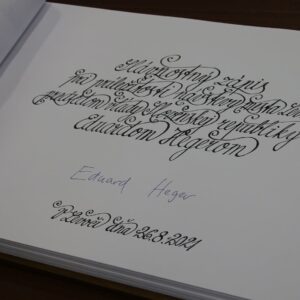 Slávnostný zápis
pri príležitosti návštevy mesta
predsedom vlády Slovenskej republiky
Eduardom Hegerom
Eduard Heger
V Levoči dňa 26.8.2021